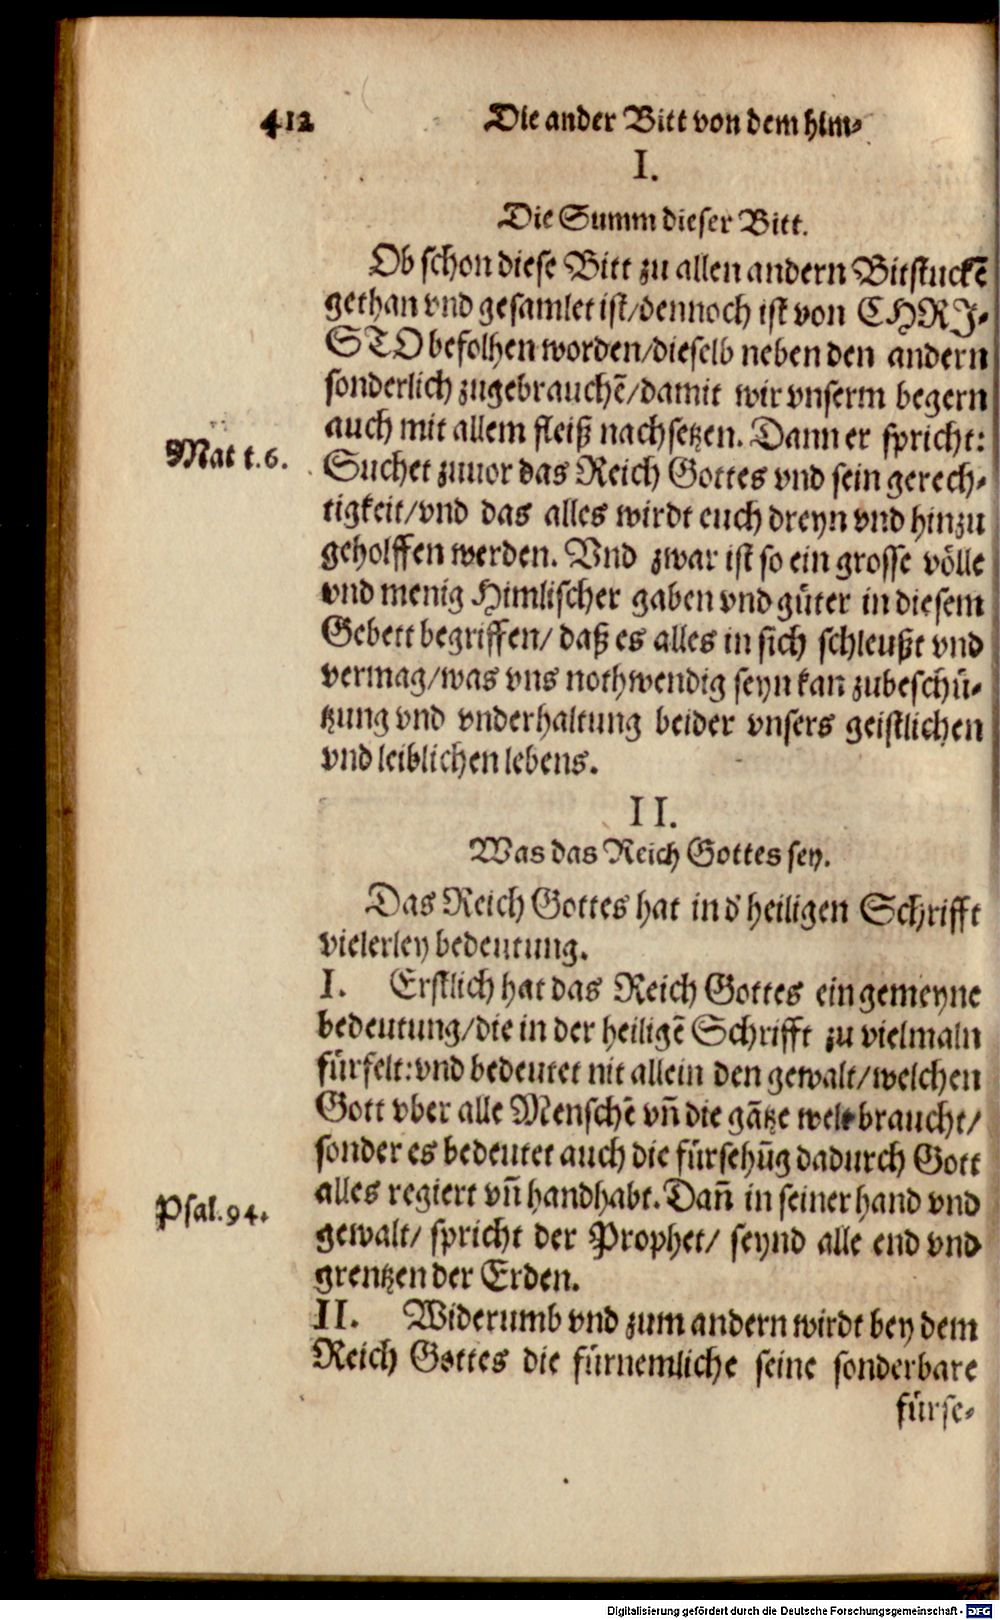 412 Die ander Bitt von dem him⸗
I.
Die Summ dieser Bitt.
Ob schon diese Bitt zu allen andern Bitstuckẽ
gethan vnd gesamlet ist/dennoch ist von CHRI⸗
STO befolhen worden/dieselb neben den andern
sonderlich zugebrauchẽ/damit wir vnserm begern
auch mit allem fleiß nachsetzen. Dann er spricht:
Matt.6.
Suchet zuuor das Reich Gottes vnd sein gerech⸗
tigkeit/vnd das alles wirdt euch dreyn vnd hinzu
geholffen werden. Vnd zwar ist so ein grosse völle
vnd menig Himlischer gaben vnd güter in diesem
Gebett begriffen/ daß es alles in sich schleußt vnd
vermag/was vns nothwendig seyn kan zubeschü⸗
tzung vnd vnderhaltung beider vnsers geistlichen
vnd leiblichen lebens.
II.
Was das Reich Gottes sey.
Das Reich Gottes hat in d' heiligen Schrifft
vielerley bedeutung.
I. Erstlich hat das Reich Gottes ein gemeyne
bedeutung/die in der heiligẽ Schrifft zu vielmaln
fürfelt: vnd bedeutet nit allein den gewalt/welchen
Gott vber alle Menschẽ vñ die gãtze welt braucht/
sonder es bedeutet auch die fürsehũg dadurch Gott
alles regiert vñ handhabt. Dañ in seiner hand vnd
Psal.94.
gewalt/ spricht der Prophet/ seynd alle end vnd
grentzen der Erden.
II. Widerumb vnd zum andern wirdt bey dem
Reich Gottes die fürnemliche seine sonderbare
fürse⸗
Digitalisierung gefördert durch die Deutsche Forschungsgemeinschaft - DFG